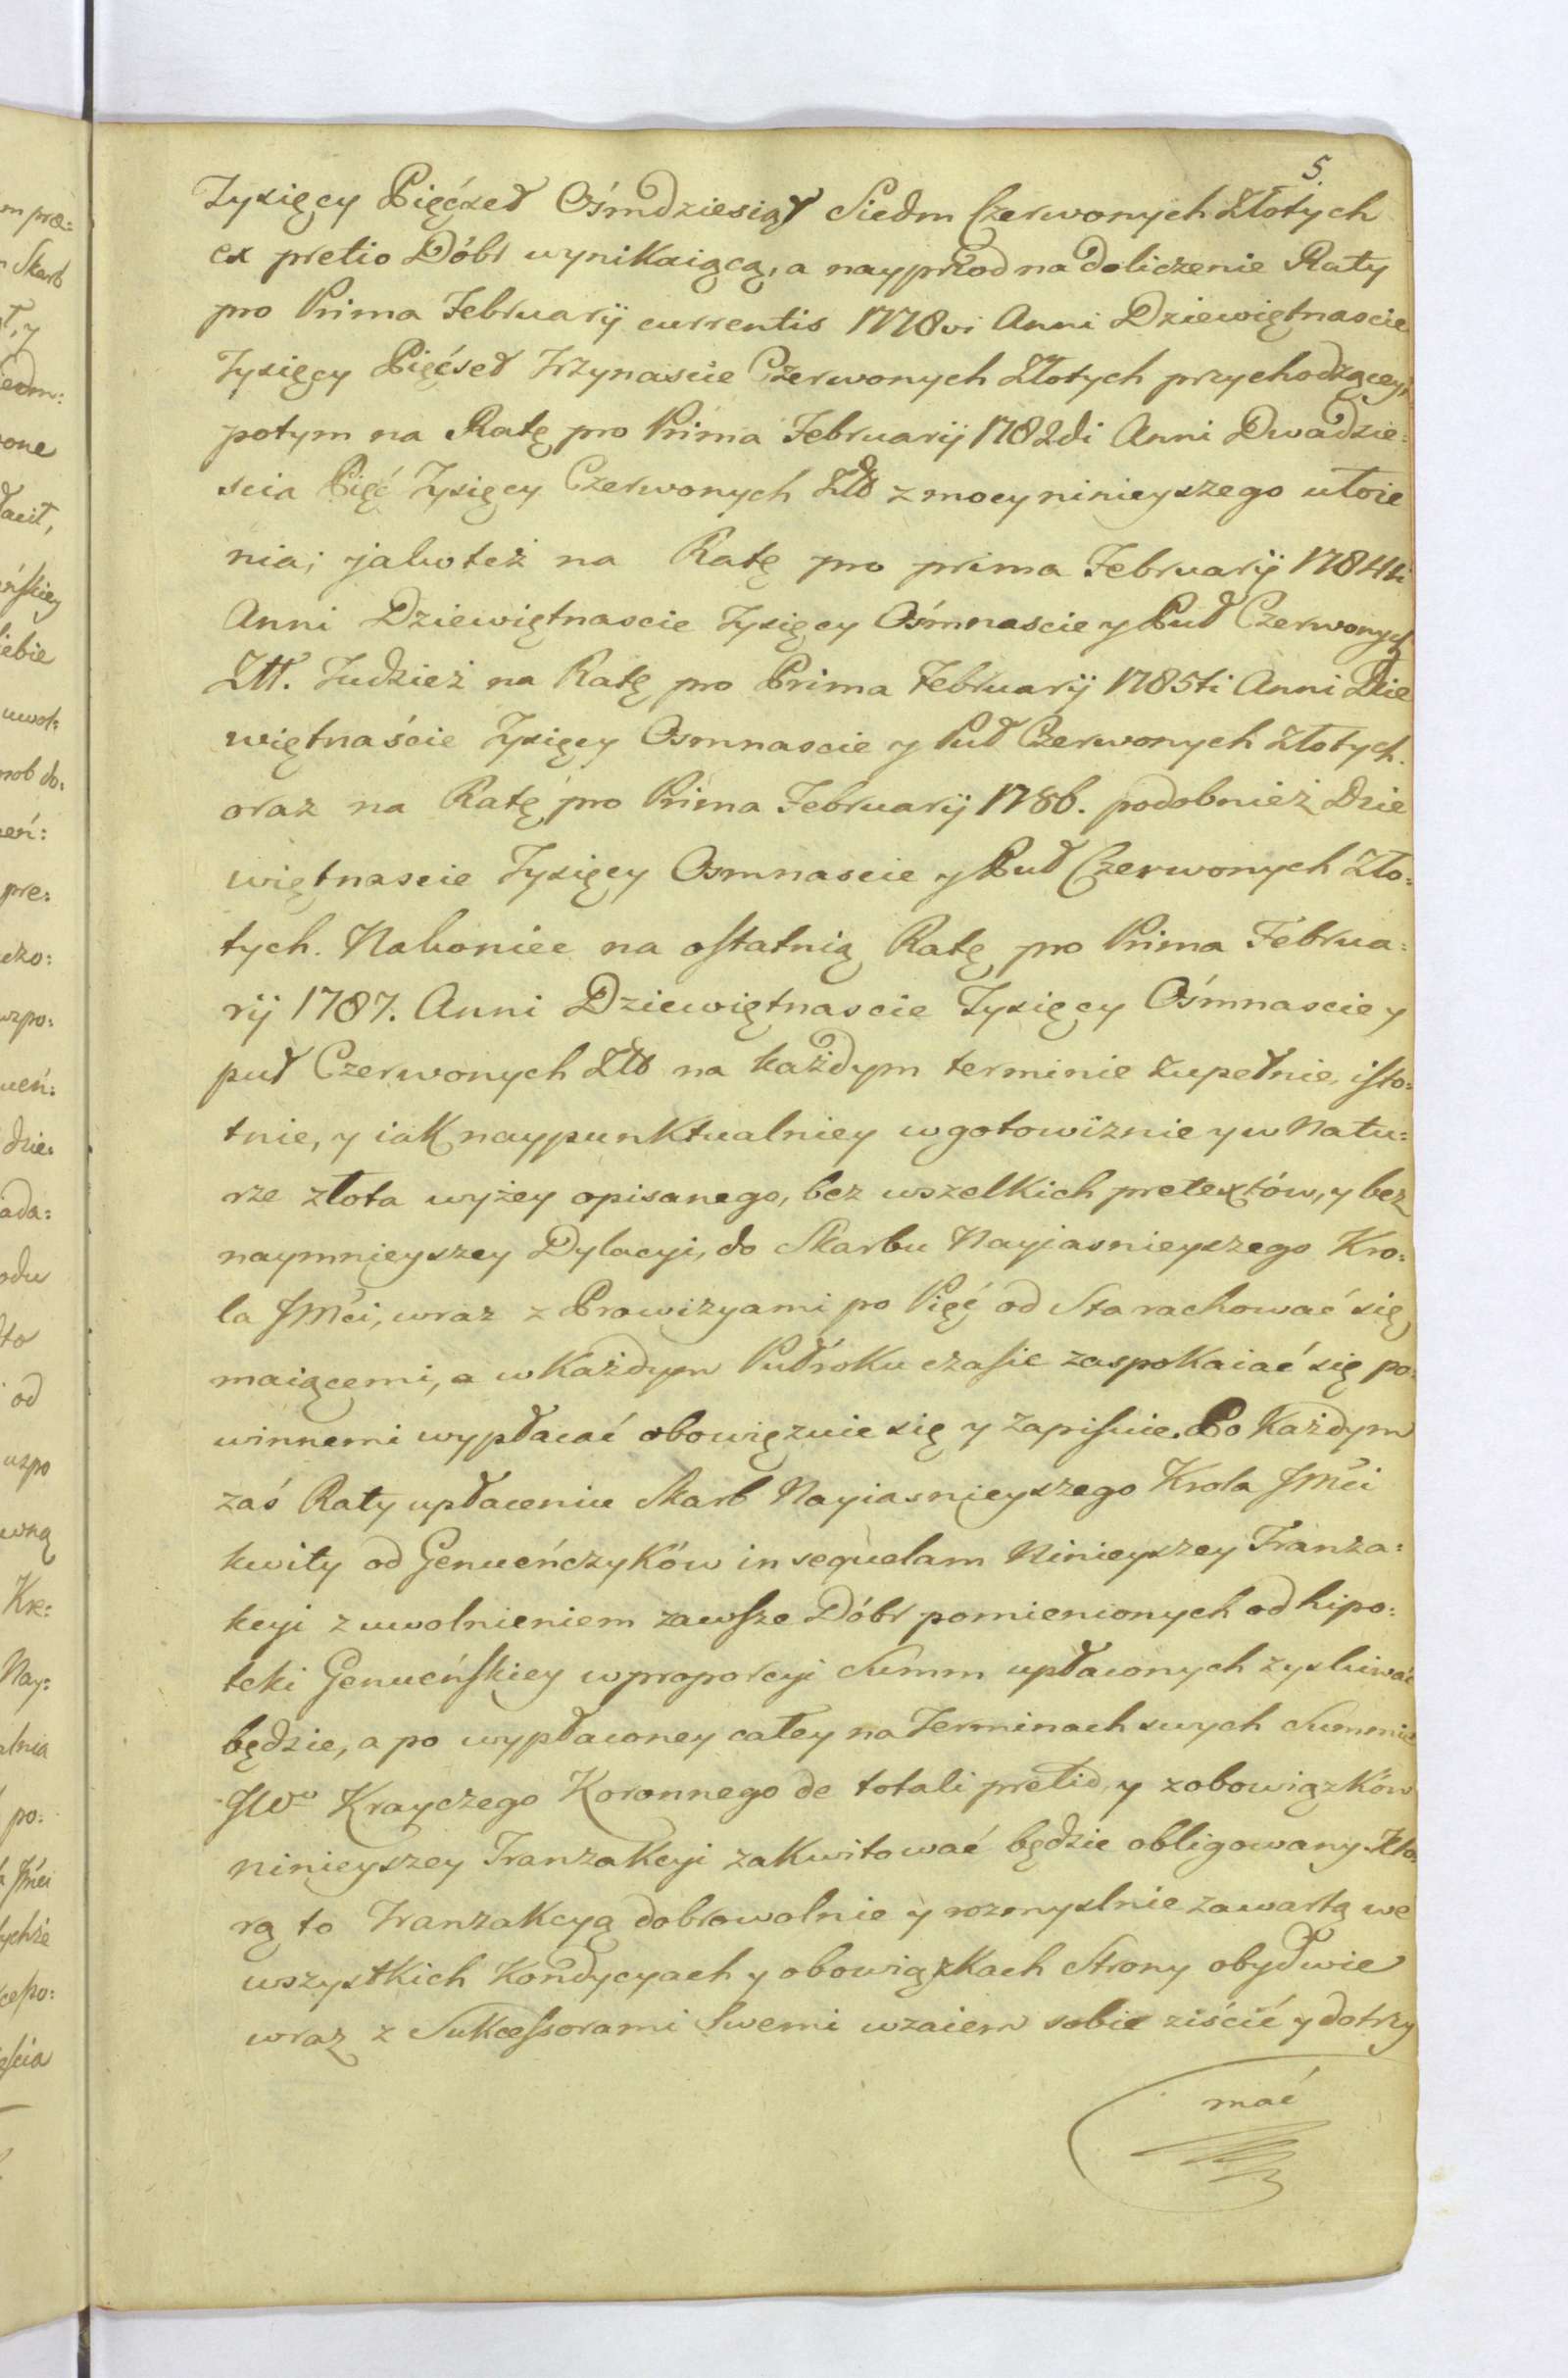 5.
Tysięcy Pięćset Ośmdziesiąt Siedm Czerwonych Złotych
ex pretio Dóbr wynikaiącą, a nayprzod na doliczenie Raty
pro Prima Februarij currentis 1778vi Anni Dziewiętnascie
Tysięcy Pięćset Trzynascie Czerwonych Złotych przychodzącey,
potym na Ratę pro Prima Februarij 1782di Anni Dwadzie=
scia Pięć Tysięcy Czerwonych Złł z mocy ninieyszego ułoże
nia; jako też na Ratę pro prima Februarij 1784ti
Anni Dziewiętnascie Tysięcy Ośmnascie y Puł Czerwonych
Złł. Tudzież na Ratę pro Prima Februarij 1785ti Anni Dzie
więtnaście Tysięcy Osmnascie y Puł Czerwonych Złotych.
oraz na Ratę pro Prima Februarij 1786. podobnież Dzie
więtnascie Tysięcy Osmnascie y Puł Czerwonych Zło=
tych. Nakoniec na ostatnią Ratę pro Prima Februa=
rij 1787. Anni Dziewiętnascie Tysięcy Ośmnascie y
puł Czerwonych Złł na każdym terminie zupełnie, isto=
tnie, y iak naypunktualniey w gotowiznie y w Natu=
rze złota wyżey opisanego, bez wszelkich pretextów, y bez
naymnieyszey Dylacyi, do Skarbu Nayiasnieyszego Kro=
la JMci, wraz z Prowizyami po Pięć od Sta rachować się
maiącemi, a w Każdym Pułroku czasie zaspokaiać się po=
winnemi wypłacać obowięzuie się y zapisuie. Po Każdym
zaś Raty upłaceniu Skarb Nayiasnieyszego Krola JMci
kwity od Genueńczyków in sequelam Ninieyszey Tranza=
kcyi z uwolnieniem zawsze Dóbr pomienionych od hipo=
teki Genueńskiey w proporcyi Summ upłaconych zyskiwać
będzie, a po wypłaconey całey na Terminach swych Summie
JWo Krayczego Koronnego de totali pretio, y z obowiązków
ninieyszey Tranzakcyi zakwitować będzie obligowany. Kto=
rą to Tranzakcyą dobrowolnie y rozmyslnie zawartą we
wszystkich Kondycyach y obowiązkach Strony obydwie
wraz z Sukcessorami Swemi wzaiem sobie ziścić y dotrzy
mać